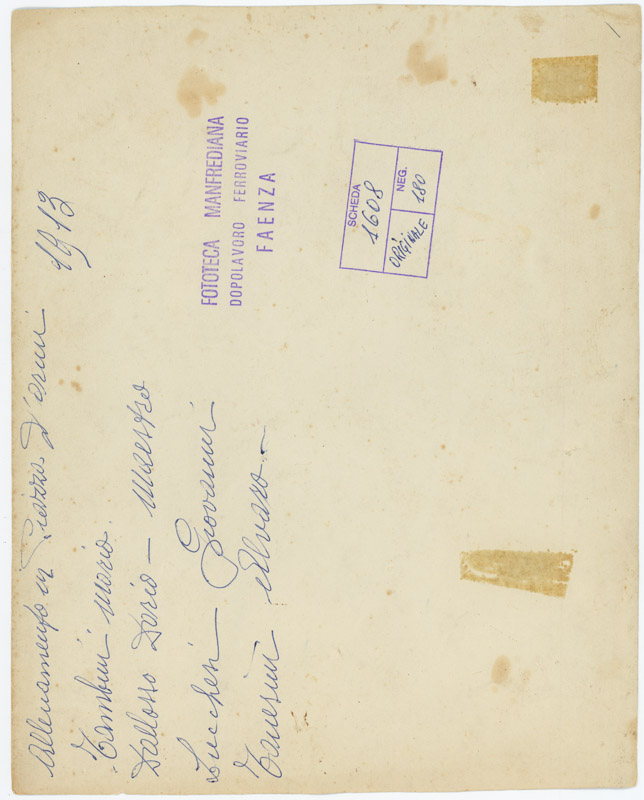 Allenamento in Piazza D'armi 1913
Tambini Mario
Dallosso Dario - Maestro
Lucchesi - Giovanni
Alvaro
FOTOTECA MANFREDIANA
DOPOLAVORO FERROVIARIO
FAENZA
SCHEDA
1608
ORIGINALE
NEG.
180